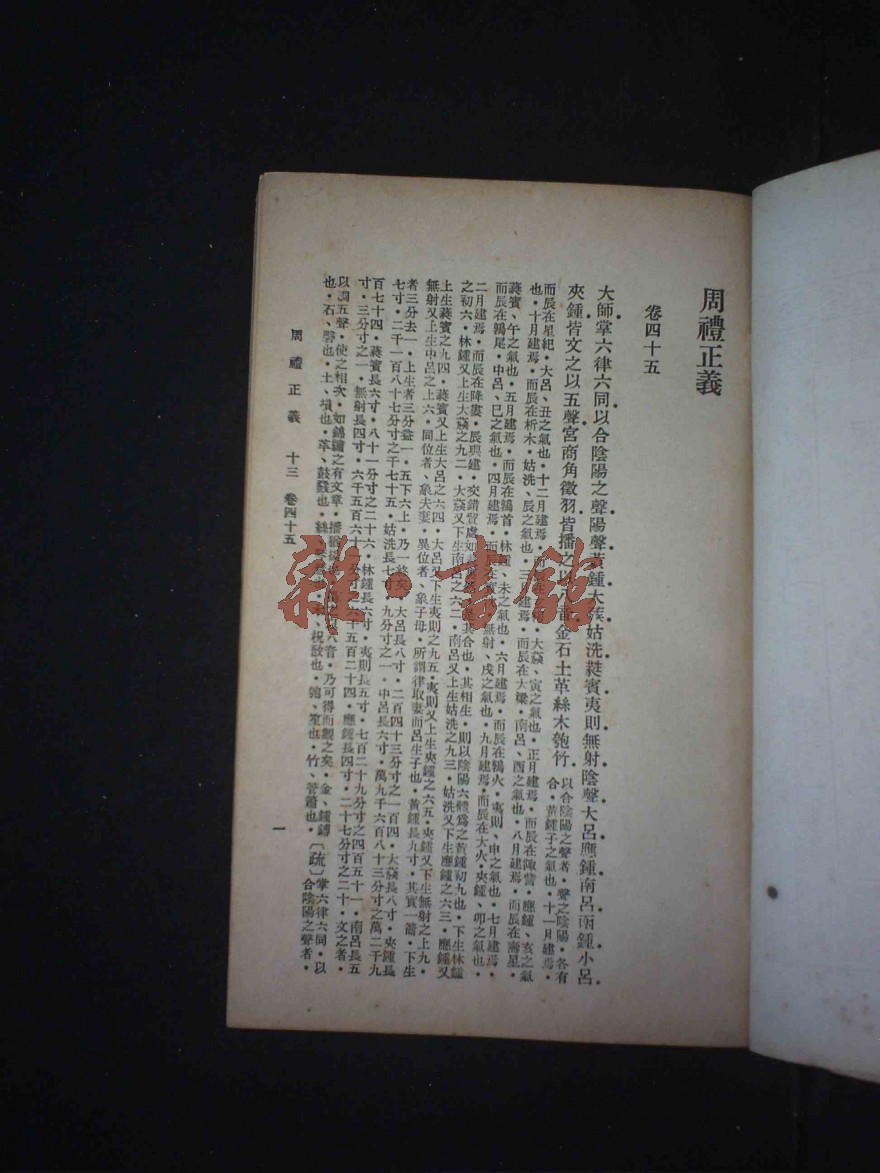 周禮正義
卷四十五
大師掌六律六同以合陰陽之聲陽聲黃鍾大蔟姑洗蕤賓夷則無射陰聲大呂應鍾南呂函鍾小呂
夾鍾皆文之以五聲宮商角徵羽皆播之以音金石土革絲木匏竹
以合陰陽之聲者・聲之陰陽・各有
合・黃鍾子之氣也・十一月建焉・
而辰在星紀・大呂、丑之氣也・十二月建焉・而辰在・大蔟、寅之氣也・正月建焉・而辰在娵訾・應鍾、亥之氣
也・十月建焉・而辰在析木・姑洗、辰之氣也・三月建焉・而辰在大梁・南呂、酉之氣也・八月建焉・而辰在壽星・
蕤賓、午之氣也・五月建焉・而辰在鶉首・林鍾、未之氣也・六月建焉・而辰在鶉火・夷則、申之氣也・七月建焉・
而辰在鶉尾・中呂、巳之氣也・四月建焉・而辰在實・無射、戌之氣也・九月建焉・而辰在大火・夾鍾、卯之氣也・
二月建焉・而辰在降婁・辰與建・交錯貿處如・其合也・其相生・則以陰陽六體為之黃鍾初九也・下生林鍾
之初六・林鍾又上生大蔟之九二・大蔟又下生南呂之六二・南呂又上生姑洗之九三・姑洗又下生應鍾之六三・應鍾又
上生蕤賓之九四・蕤賓又上生大呂之六四・大呂又下生夷則之九五・夷則又上生夾鍾之六五・夾鍾又下生無射之上九・
無射又上生中呂之上六・同位者、象夫妻・異位者、象子母・所謂律取妻而呂生子也・黃鍾長九寸・其實一籥・下生
者三分去一・上生者三分益一・五下六上・乃一終矣・大呂長八寸・二百四十三分寸之一百四・大蔟長八寸・夾鍾長
七寸・二千一百八十七分寸之千七十五・姑洗長七寸・九分寸之一・中呂長六寸・萬九千六百八十三分寸之萬二千九
百七十四・蕤賓長六寸・八十一分寸之二十六・林鍾長六寸・夷則長五寸・七百二十九分寸之四百五十一・南呂長五
寸・三分寸之一・無射長四寸・六千五百六十一分寸之六千五百二十四・應鍾長四寸・二十七分寸之二十・文之者・
以調五聲・使之相次・如錦繡之有文章・播・八音・乃可得而觀之矣・金、鍾鎛
也・石、磬也・土、塤也・革、鼓鼗也・絲、・祝敔也・匏、笙也・竹、管簫也・
〔疏〕掌六律六同・以
合陰陽之聲者・
周禮正義 十三 卷四十五
一
雜·書館